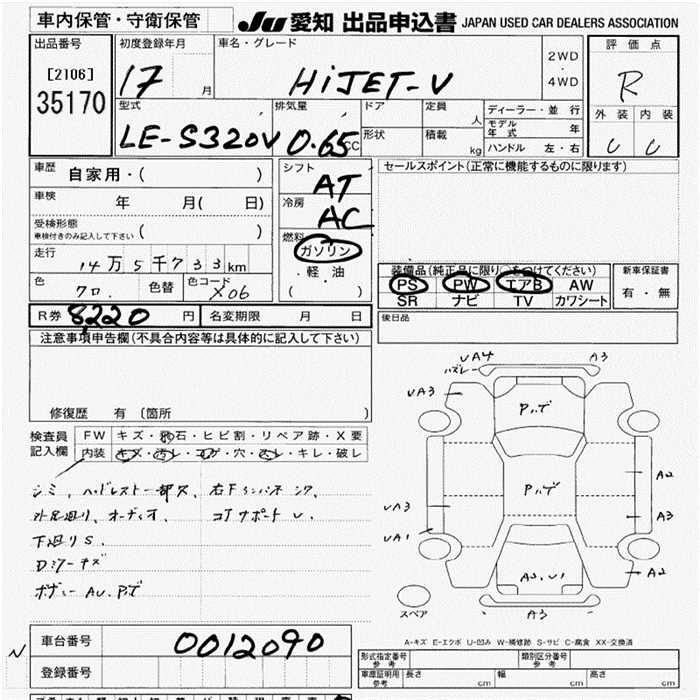 車内保管・守衛保管
JU 愛知 出品申込書 JAPAN USED CAR DEALERS ASSOCIATION
出品番号
[2106]
35170
初度登録年月
17 月
車名・グレード
HiJET-V
2WD
・
4WD
評価点
R
外装 内装
C C
型式
LE-S320V
排気量
0.65 CC
ドア
形状
定員 人
積載 kg
ディーラー・並行
モデル年式 年
ハンドル 左・右
車歴 自家用・( )
車検 年 月( 日)
受検形態
車検付きのみ記入して下さい ( )
走行 14万5千733km
色 クロ 色替 色コード X06
シフト AT
冷房 AC
燃料
ガソリン
・
軽油
( )
セールスポイント(正常に機能するものに限ります)
装備品(純正品に限り○をつけてください)
PS PW エアB AW
SR ナビ TV カワシート
新車保証書
有・無
R券 8220 円 名変期限 月 日
後日品
注意事項申告欄(不具合内容等は具体的に記入して下さい)
修復歴 有(箇所 )
検査員
記入欄
FW キズ・飛石・ヒビ割・リペア跡・X要
内装 キズ・汚レ・コゲ・穴・スレ・キレ・破レ
シミ、ヘッドレスト一部ス、
外足廻り、オーディオ、
下廻りS.
UA4
A3
UA3
UA3
UA1
A2
A3
A2
A2、U1
A3
スペア
A-キズ E-エクボ U-凹み W-補修跡 S-サビ C-腐食 XX-交換済
車台番号 0012090
登録番号
形式指定番号
参考
類別区分番号
参考
車庫証明用
参考
長さ cm 幅 cm 高さ cm